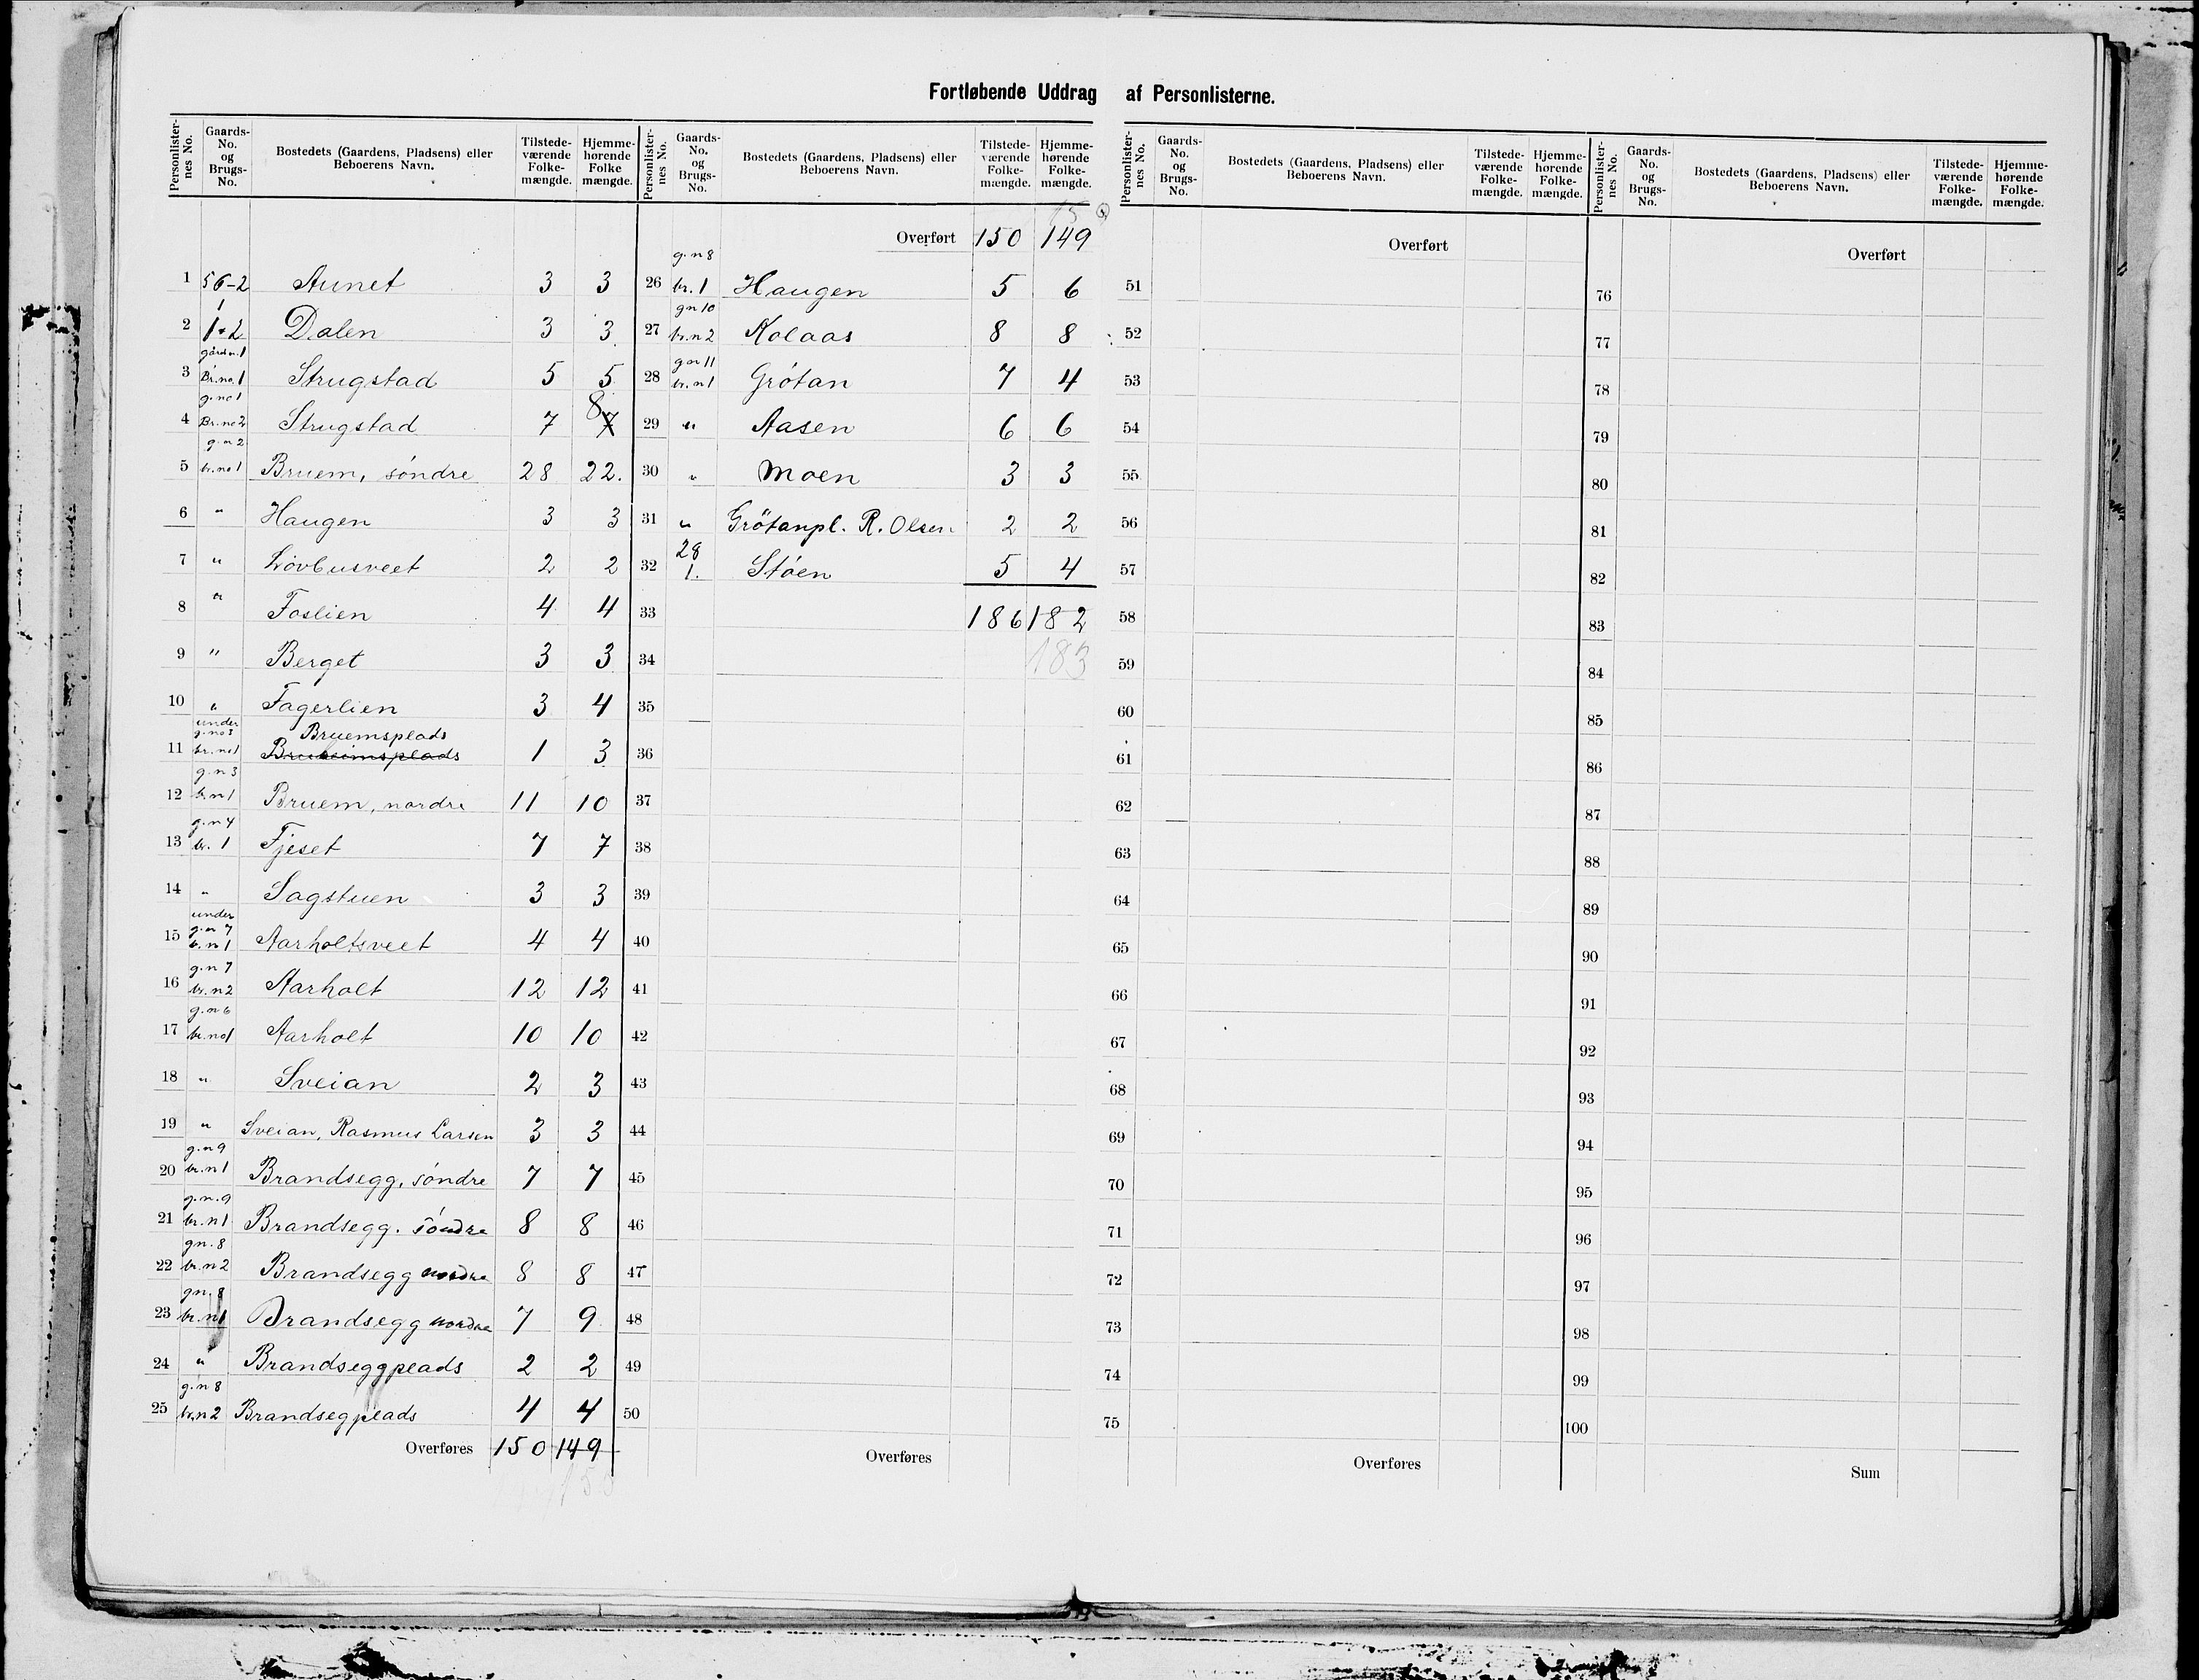 Fortløbende Uddrag af Personlisterne.
Personlisternes No. Gaards-No. og Brugs-No. Bostedets (Gaardens, Pladsens) eller Beboerens Navn. Tilstedeværende Folkemængde. Hjemmehørende Folkemængde.
1 56-2 Aunet 3 3
2 1 1+2 Dalen 3 3
3 gårdsn.1 Br.no.1 Strugstad 5 5
4 g.no1 Br.no2 Strugstad 7 7 8
5 g.n2 br.no1 Bruem, søndre 28 22.
6 " Haugen 3 3
7 " Løvbusveet 2 2
8 " Foslien 4 4
9 " Berget 3 3
10 " Fagerlien 3 4
11 under g.no3 br.no1 Bruemsplads 1 3
12 g.n3 br.n1 Bruem, nordre 11 10
13 g.n4 br.1 Fjeset 7 7
14 " Sagstuen 3 3
15 under g.n7 br.n1 Aarholtsveet 4 4
16 g.n7 br.n2 Aarholt 12 12
17 g.n6 br.no1 Aarholt 10 10
18 " Sveian 2 3
19 " Sveian, Rasmus Larsen 3 3
20 g.n9 br.n1 Brandsegg, søndre 7 7
21 g.n.9 br.n1 Brandsegg. søndre 8 8
22 gn.8 br.n2 Brandsegg nordre 8 8
23 gn.8 br.n1 Brandsegg nordre 7 9
24 " Brandseggplads 2 2
25 g.n8 br.n2 Brandsegplads 4 4
Overføres 150 149
150
Personlisternes No. Gaards-No. og Brugs-No. Bostedets (Gaardens, Pladsens) eller Beboerens Navn. Tilstedeværende Folkemængde. Hjemmehørende Folkemængde.
Overført 150 149
26 g.n8 br.1 Haugen 5 6
27 gn10 br.n2 Kolaas 8 8
28 gn11 br.n1 Grøtan 7 4
29 " Aasen 6 6
30 " Moen 3 3
31 " Grøtanpl. R. Olsen 2 2
32 28 1. Støen 5 4
33 186 182
34 183
35
36
37
38
39
40
41
42
43
44
45
46
47
48
49
50
Overføres
Personlisternes No. Gaards-No. og Brugs-No. Bostedets (Gaardens, Pladsens) eller Beboerens Navn. Tilstedeværende Folkemængde. Hjemmehørende Folkemængde.
Overført
51
52
53
54
55
56
57
58
59
60
61
62
63
64
65
66
67
68
69
70
71
72
73
74
75
Overføres
Personlisternes No. Gaards-No. og Brugs-No. Bostedets (Gaardens, Pladsens) eller Beboerens Navn. Tilstedeværende Folkemængde. Hjemmehørende Folkemængde.
Overført
76
77
78
79
80
81
82
83
84
85
86
87
88
89
90
91
92
93
94
95
96
97
98
99
100
Sum